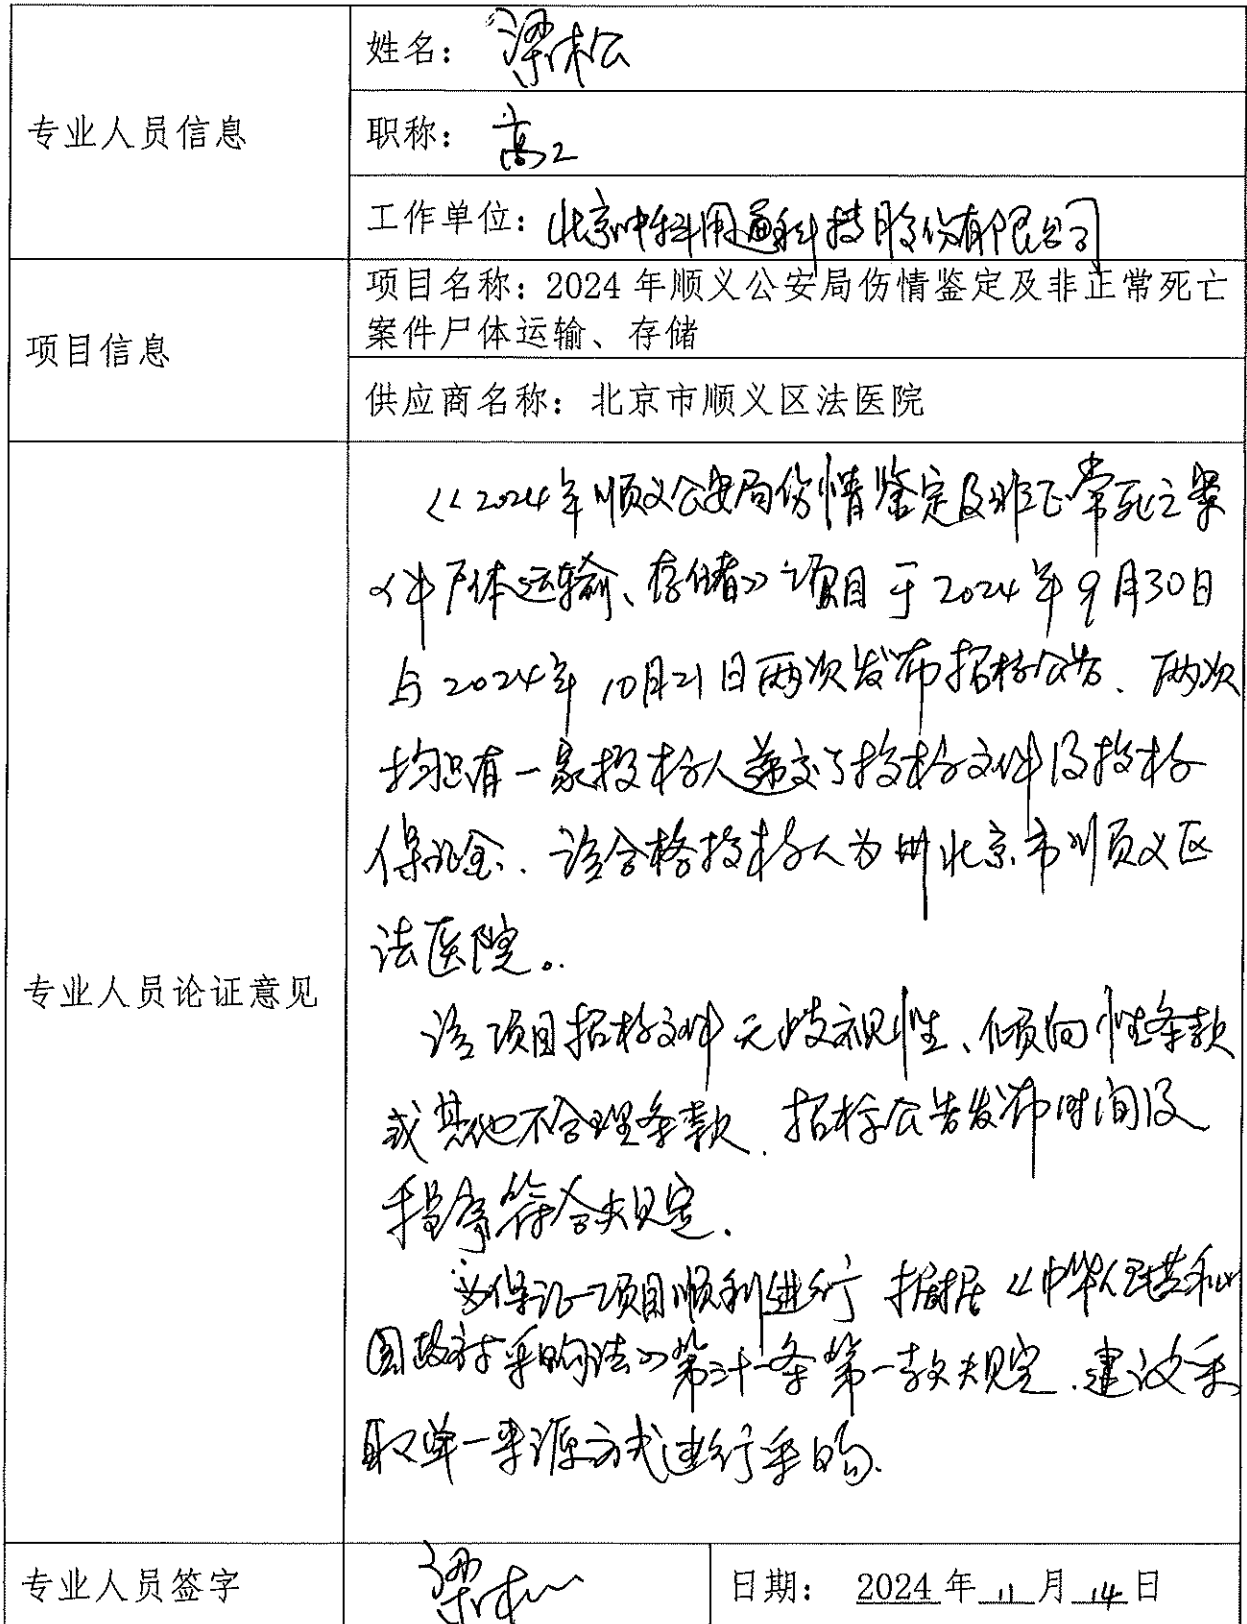 专业人员信息
姓名：梁松
职称：高工
工作单位：北京中科用通科技股份有限公司
项目信息
项目名称：2024年顺义公安局伤情鉴定及非正常死亡
案件尸体运输、存储
供应商名称：北京市顺义区法医院
专业人员论证意见
《2024年顺义公安局伤情鉴定及非正常死亡案
件尸体运输、存储》项目于2024年9月30日
与2024年10月21日两次发布招标公告、两次
均只有一家投标人递交了投标文件及投标
保证金．该合格投标人为北京市顺义区
法医院。
该项目招标文件无歧视性、倾向性条款
或其他不合理条款．招标公告发布时间及
程序符合规定．
为保证项目顺利进行 根据《中华人民共和
国政府采购法》第三十一条第一款规定．建议采
取单一来源方式进行采购．
专业人员签字
梁松
日期：2024年11月14日